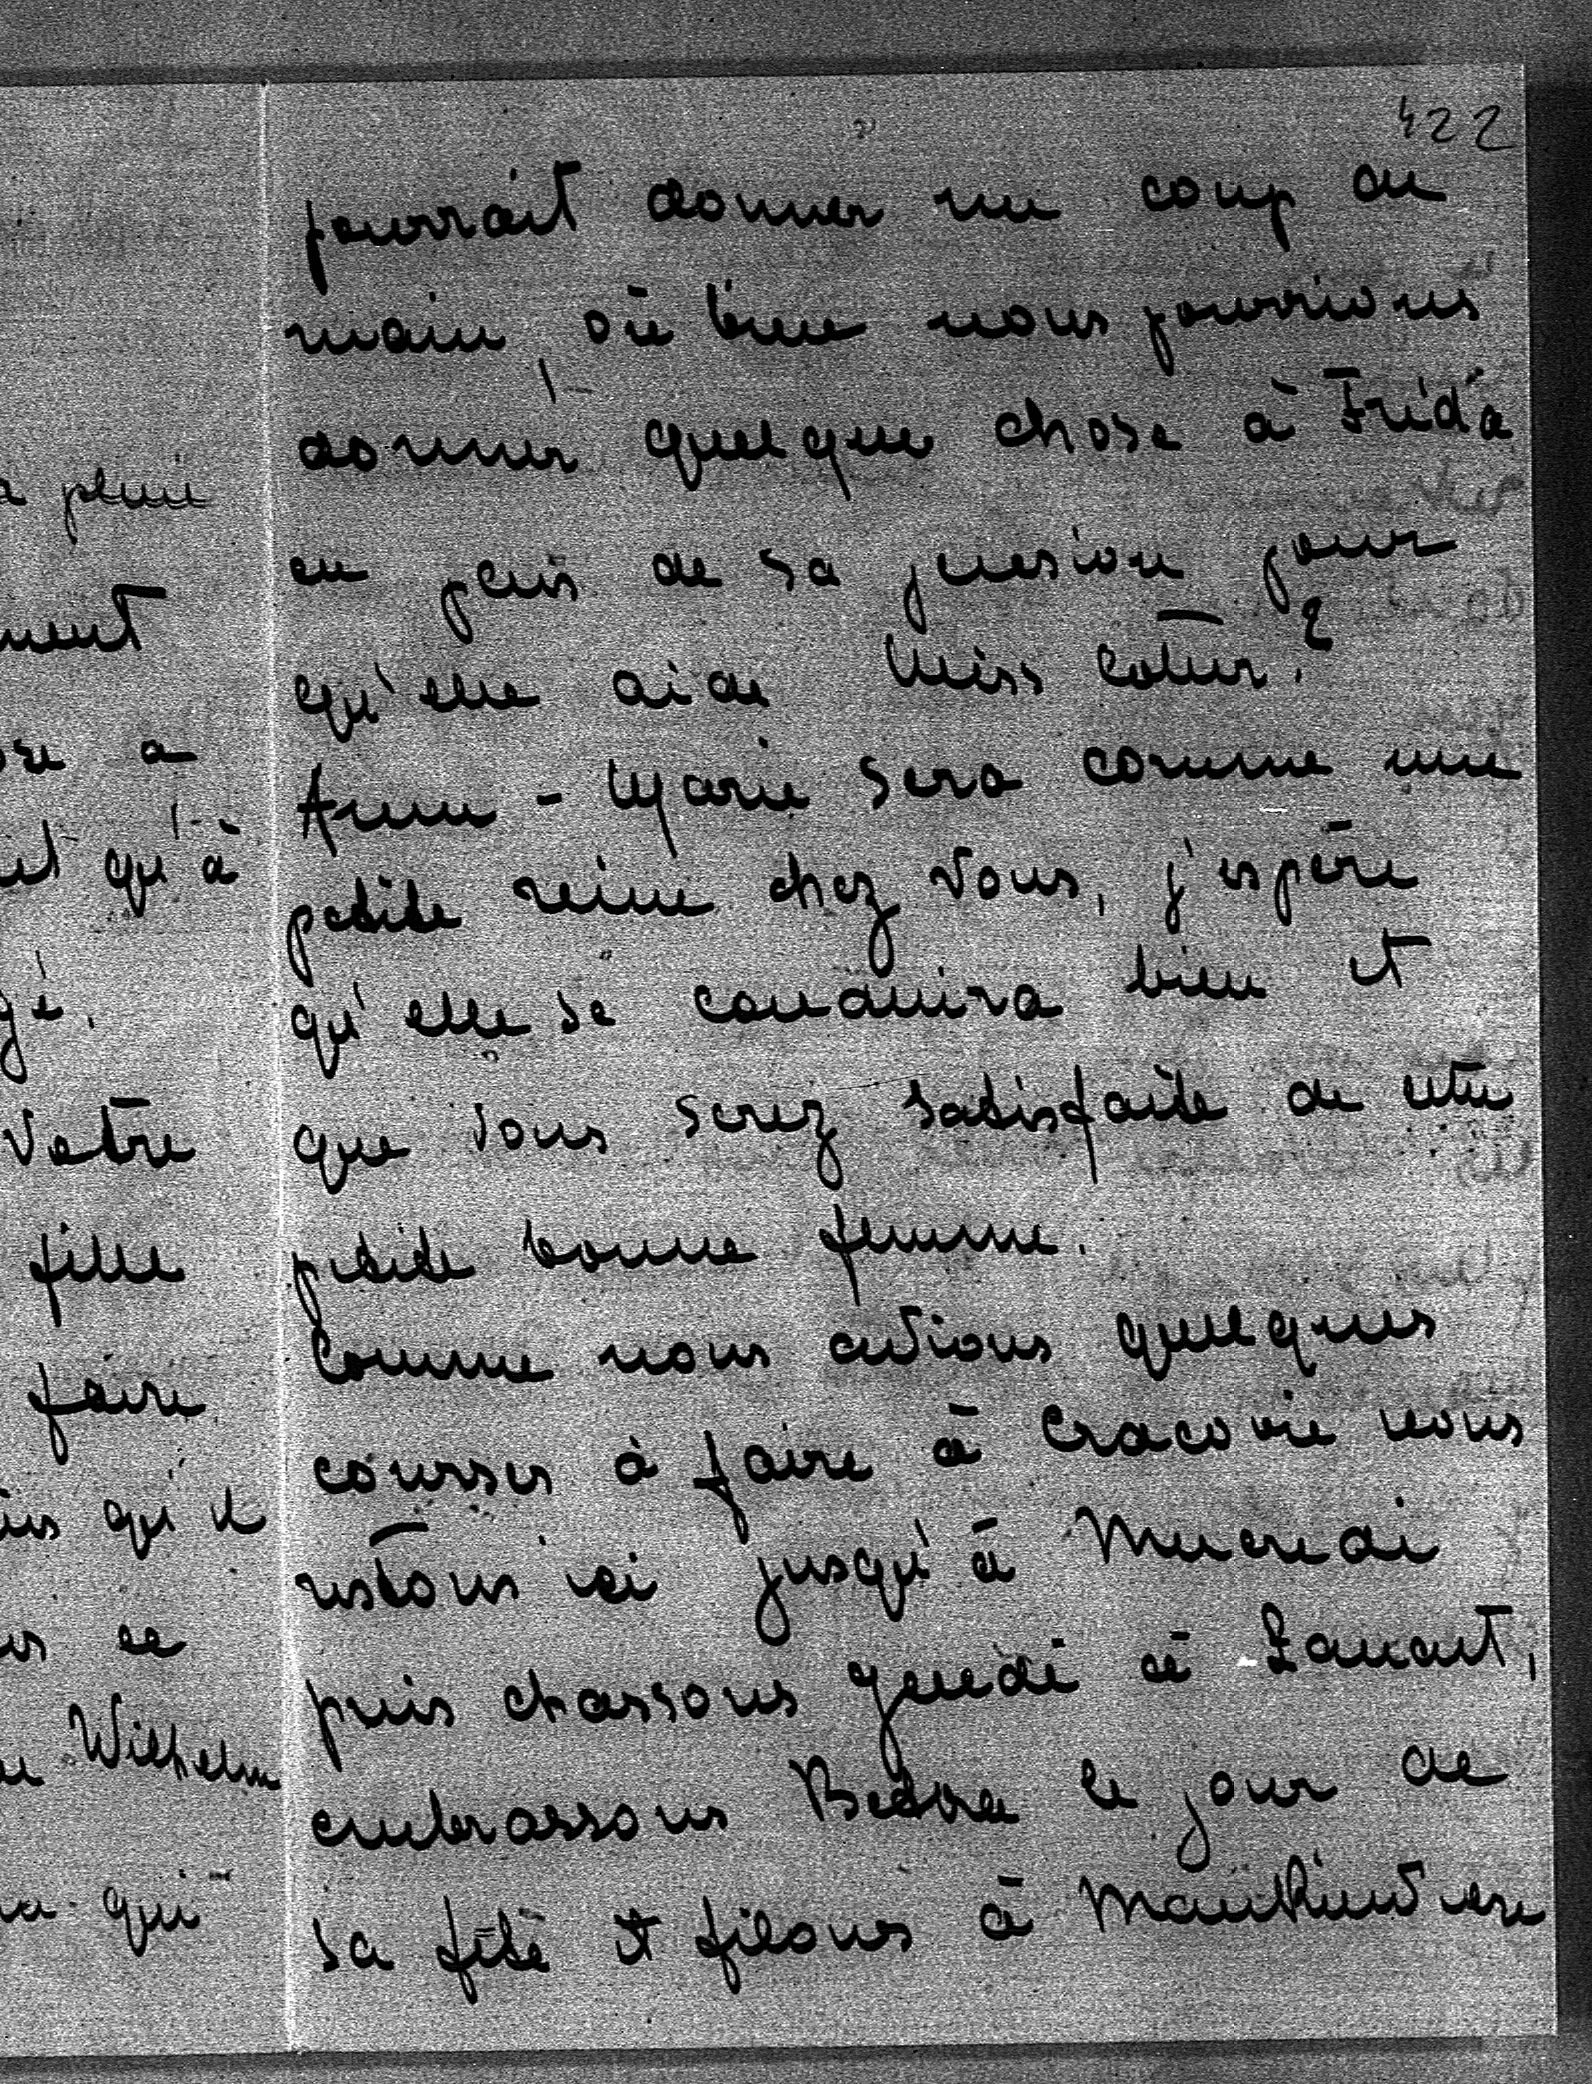 422
pourrait donner un coup de
main, où bien nous pourrions
donner quelque chose à Frida
en plus de sa pension pour
qu'elle aide Miss Cotter?
Anne-Marie sera comme une
petite reine chez Vous, j'espère
qu'elle se conduira bien et
que Vous serez satisfaite de cette
petite bonne femme.
Comme nous avions quelques
courses à faire à Cracovie nous
restons ici jusqu'à Mercredi
puis chassons jeudi à Lancut,
embrassons Betka le jour de
sa fête et filons à
a pluie
ment
a
qu'à
gé.
Votre
fille
faire
qu'il
ce
Wilhelm
qui